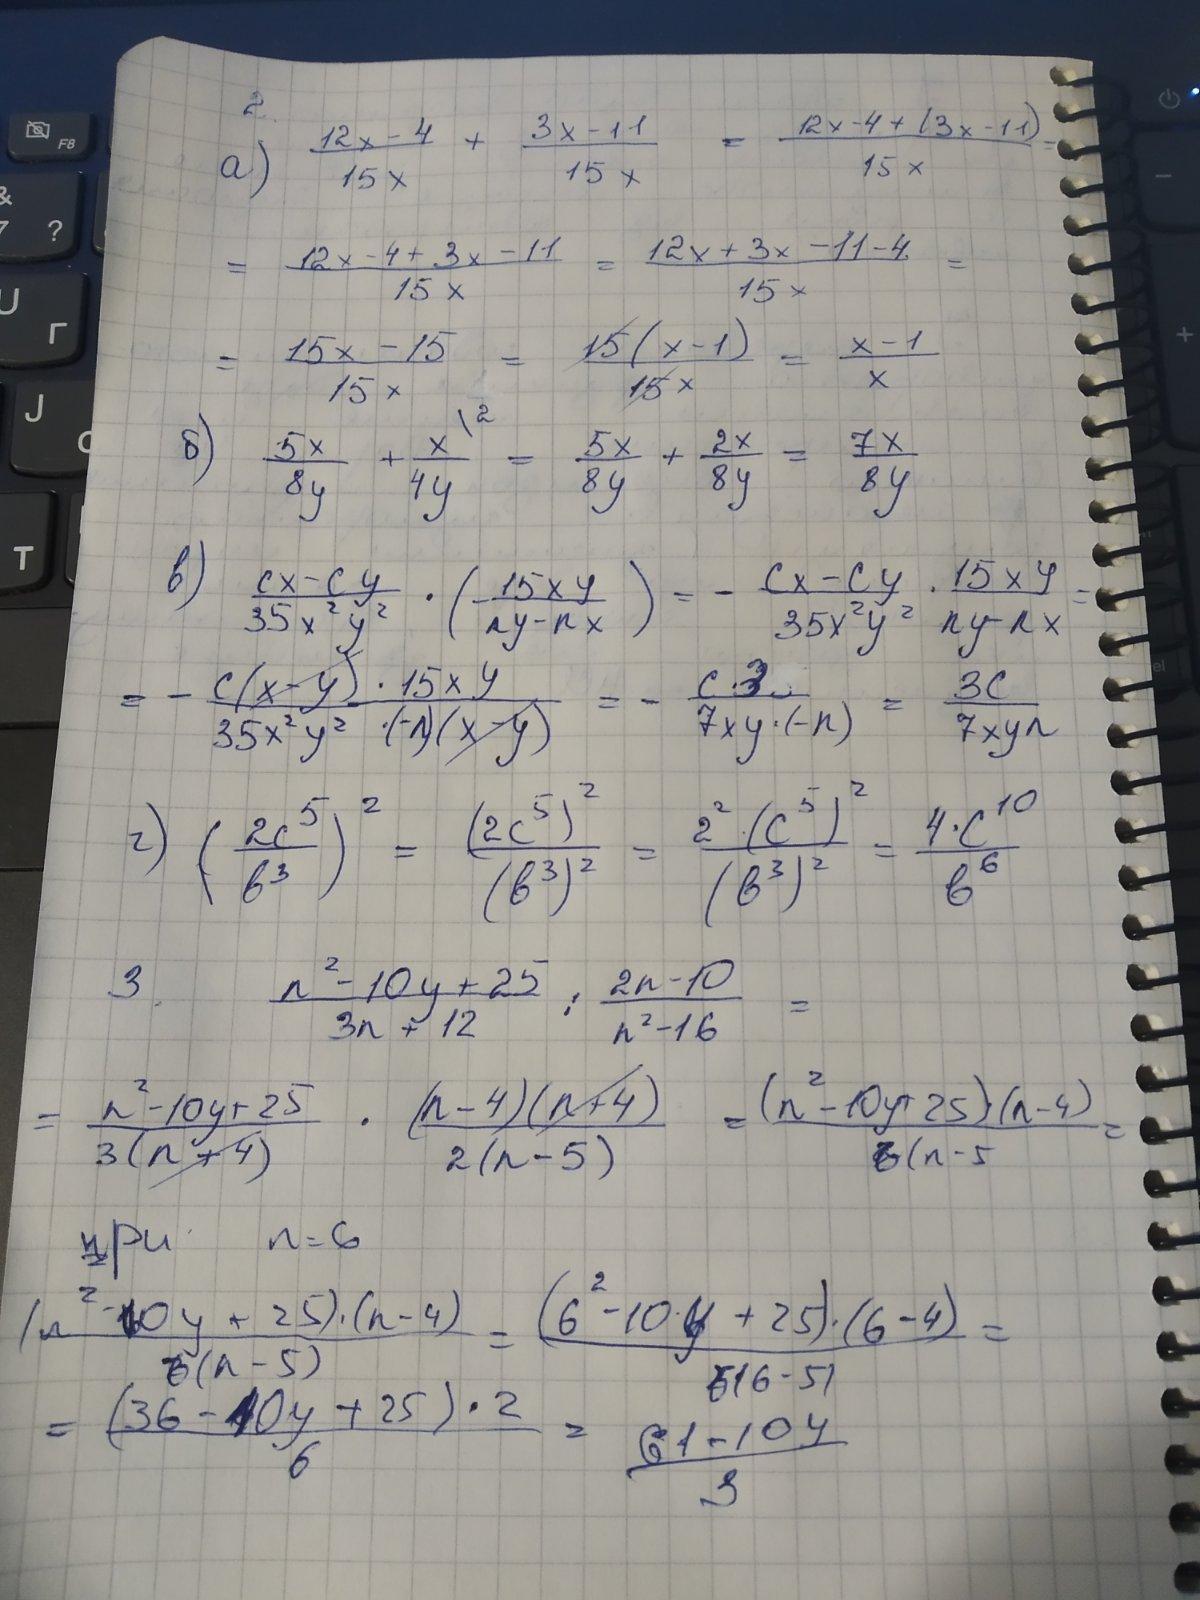 2.
а) (12x-4)/(15x) + (3x-11)/(15x) = (12x-4+(3x-11))/(15x) =
= (12x-4+3x-11)/(15x) = (12x+3x-11-4)/(15x) =
= (15x-15)/(15x) = (15(x-1))/(15x) = (x-1)/x
б) (5x)/(8y) + x/(4y) \2 = (5x)/(8y) + (2x)/(8y) = (7x)/(8y)
в) (cx-cy)/(35x²y²) · (-(15xy)/(ny-nx)) = - (cx-cy)/(35x²y²) · (15xy)/(ny-nx) =
= - (c(x-y)·15xy)/(35x²y²·(-n)(x-y)) = - (c·3)/(7xy·(-n)) = (3c)/(7xyn)
г) ((2c⁵)/(b³))² = ((2c⁵)²)/((b³)²) = (2²·(c⁵)²)/((b³)²) = (4·c¹⁰)/(b⁶)
3. (n²-10y+25)/(3n+12) : (2n-10)/(n²-16) =
= (n²-10y+25)/(3(n+4)) · ((n-4)(n+4))/(2(n-5)) = ((n²-10y+25)·(n-4))/(6(n-5) =
при n=6
((n²-10y+25)·(n-4))/(6(n-5)) = ((6²-10·y+25)·(6-4))/(6(6-5)) =
= ((36-10y+25)·2)/6 = (61-10y)/3
F8
&
7 ?
U
Г
J
Т